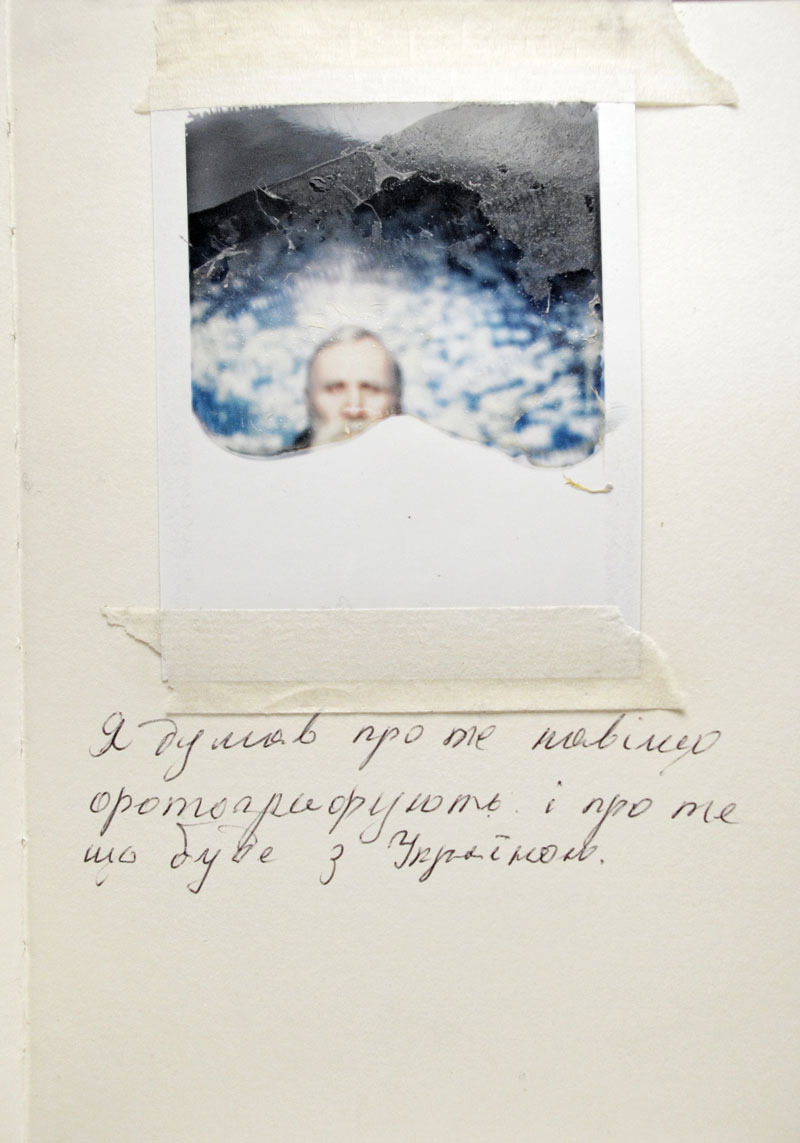 Я думав про те навіщо
фотографують і про те
що буде з Україною.